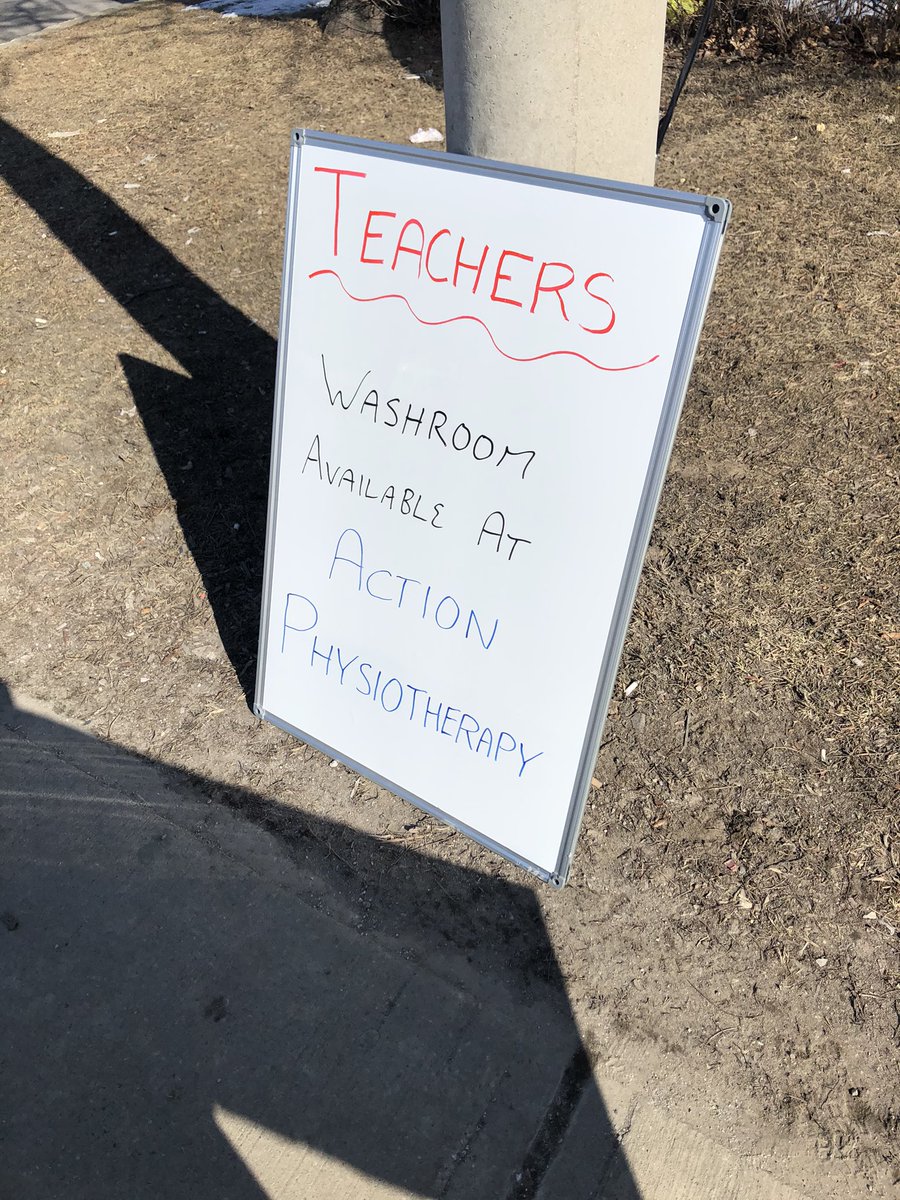 TEACHERS
WASHROOM
AVAILABLE AT
ACTION
PHYSIOTHERAPY